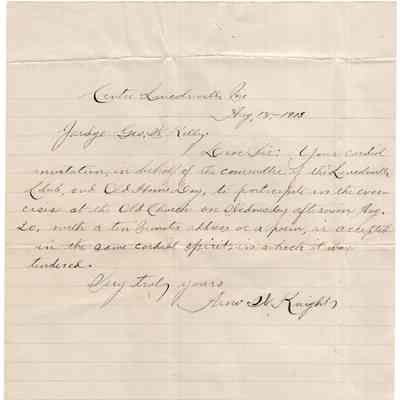 Centre Lincolnville, Me
Aug, 18 - 1913.
Judge Geo. H. Kelly;
Dear Sir: Your cordial
invitation, in behalf of the committee of the Lincolnville
Club, and Old Home Day, to participate in the exer-
cises at the Old Church on Wednesday afternoon Aug.
20, with a ten minute address or a poem, is accepted
in the same cordial spirit in which it was
tendered.
Very truly yours,
W. Knight